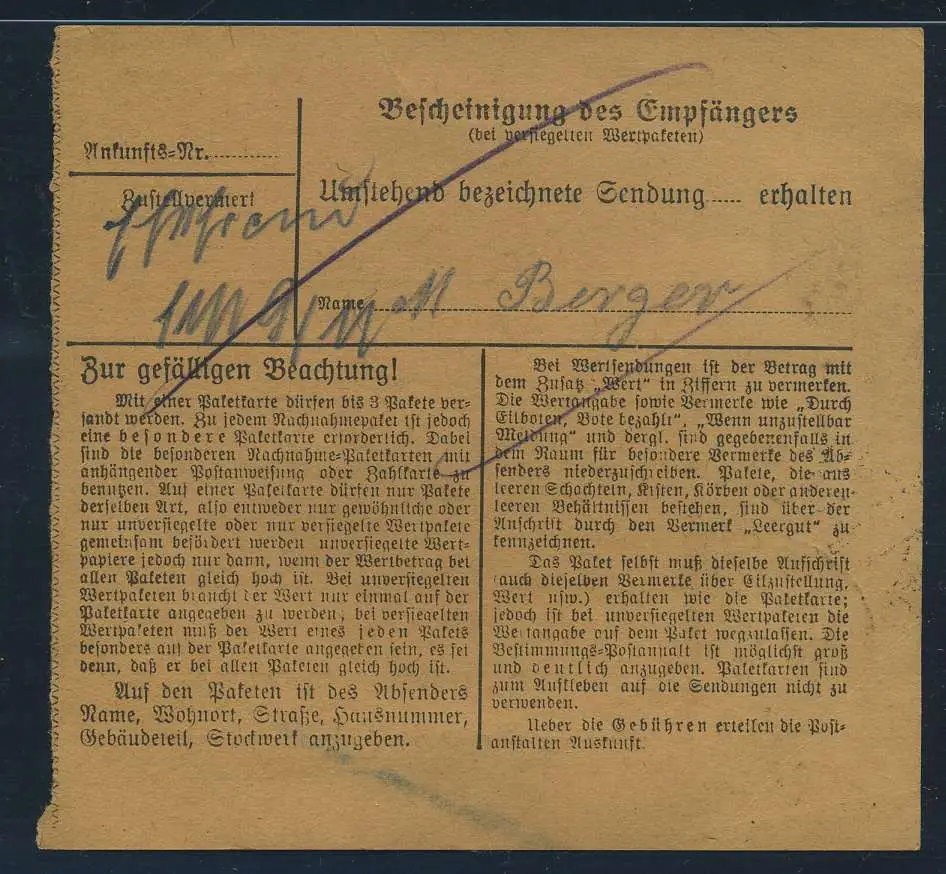 Bescheinigung des Empfängers
(bei versiegelten Wertpaketen)
Ankunfts=Nr.
Zustellvermerk
Umstehend bezeichnete Sendung..... erhalten
Name
Berger
Zur gefälligen Beachtung!
Mit einer Paketkarte dürfen bis 3 Pakete ver=
sandt werden. Zu jedem Nachnahmepaket ist jedoch
eine besondere Paketkarte erforderlich. Dabei
sind die besonderen Nachnahme=Paketkarten mit
anhängender Postanweisung oder Zahlkarte zu
benutzen. Auf einer Paketkarte dürfen nur Pakete
derselben Art, also entweder nur gewöhnliche oder
nur unversiegelte oder nur versiegelte Wertpakete
gemeinsam befördert werden unversiegelte Wert=
papiere jedoch nur dann, wenn der Wertbetrag bei
allen Paketen gleich hoch ist. Bei unversiegelten
Wertpaketen braucht der Wert nur einmal auf der
Paketkarte angegeben zu werden, bei versiegelten
Wertpaketen muß der Wert eines jeden Pakets
besonders auf der Paketkarte angegeben sein, es sei
denn, daß er bei allen Paketen gleich hoch ist.
Auf den Paketen ist des Absenders
Name, Wohnort, Straße, Hausnummer,
Gebäudeteil, Stockwerk anzugeben.
Bei Wertsendungen ist der Betrag mit
dem Zusatz „Wert“ in Ziffern zu vermerken.
Die Wertangabe sowie Vermerke wie „Durch
Eilboten, Bote bezahlt“, „Wenn unzustellbar
Meldung“ und dergl. sind gegebenenfalls in
dem Raum für besondere Vermerke des Ab=
senders niederzuschreiben. Pakete, die aus
leeren Schachteln, Kisten, Körben oder anderen
leeren Behältnissen bestehen, sind über der
Anschrift durch den Vermerk „Leergut“ zu
kennzeichnen.
Das Paket selbst muß dieselbe Aufschrift
(auch dieselben Vermerke über Eilzustellung,
Wert usw.) erhalten wie die Paketkarte;
jedoch ist bei unversiegelten Wertpaketen die
Wertangabe auf dem Paket wegzulassen. Die
Bestimmungs=Postanstalt ist möglichst groß
und deutlich anzugeben. Paketkarten sind
zum Aufkleben auf die Sendungen nicht zu
verwenden.
Ueber die Gebühren erteilen die Post=
anstalten Auskunft.